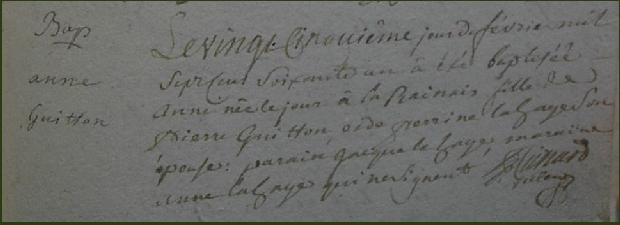 Bap
anne
Guitton
Le vingt Cinquième jour de février mil
Sept cent Soixante un à été baptisée
Anne née le jour à la Rainais fille de
Pierre Guitton, et de perrine la faye Son
épouse: parain jacque le faye, maraine
anne la faye qui ne signent